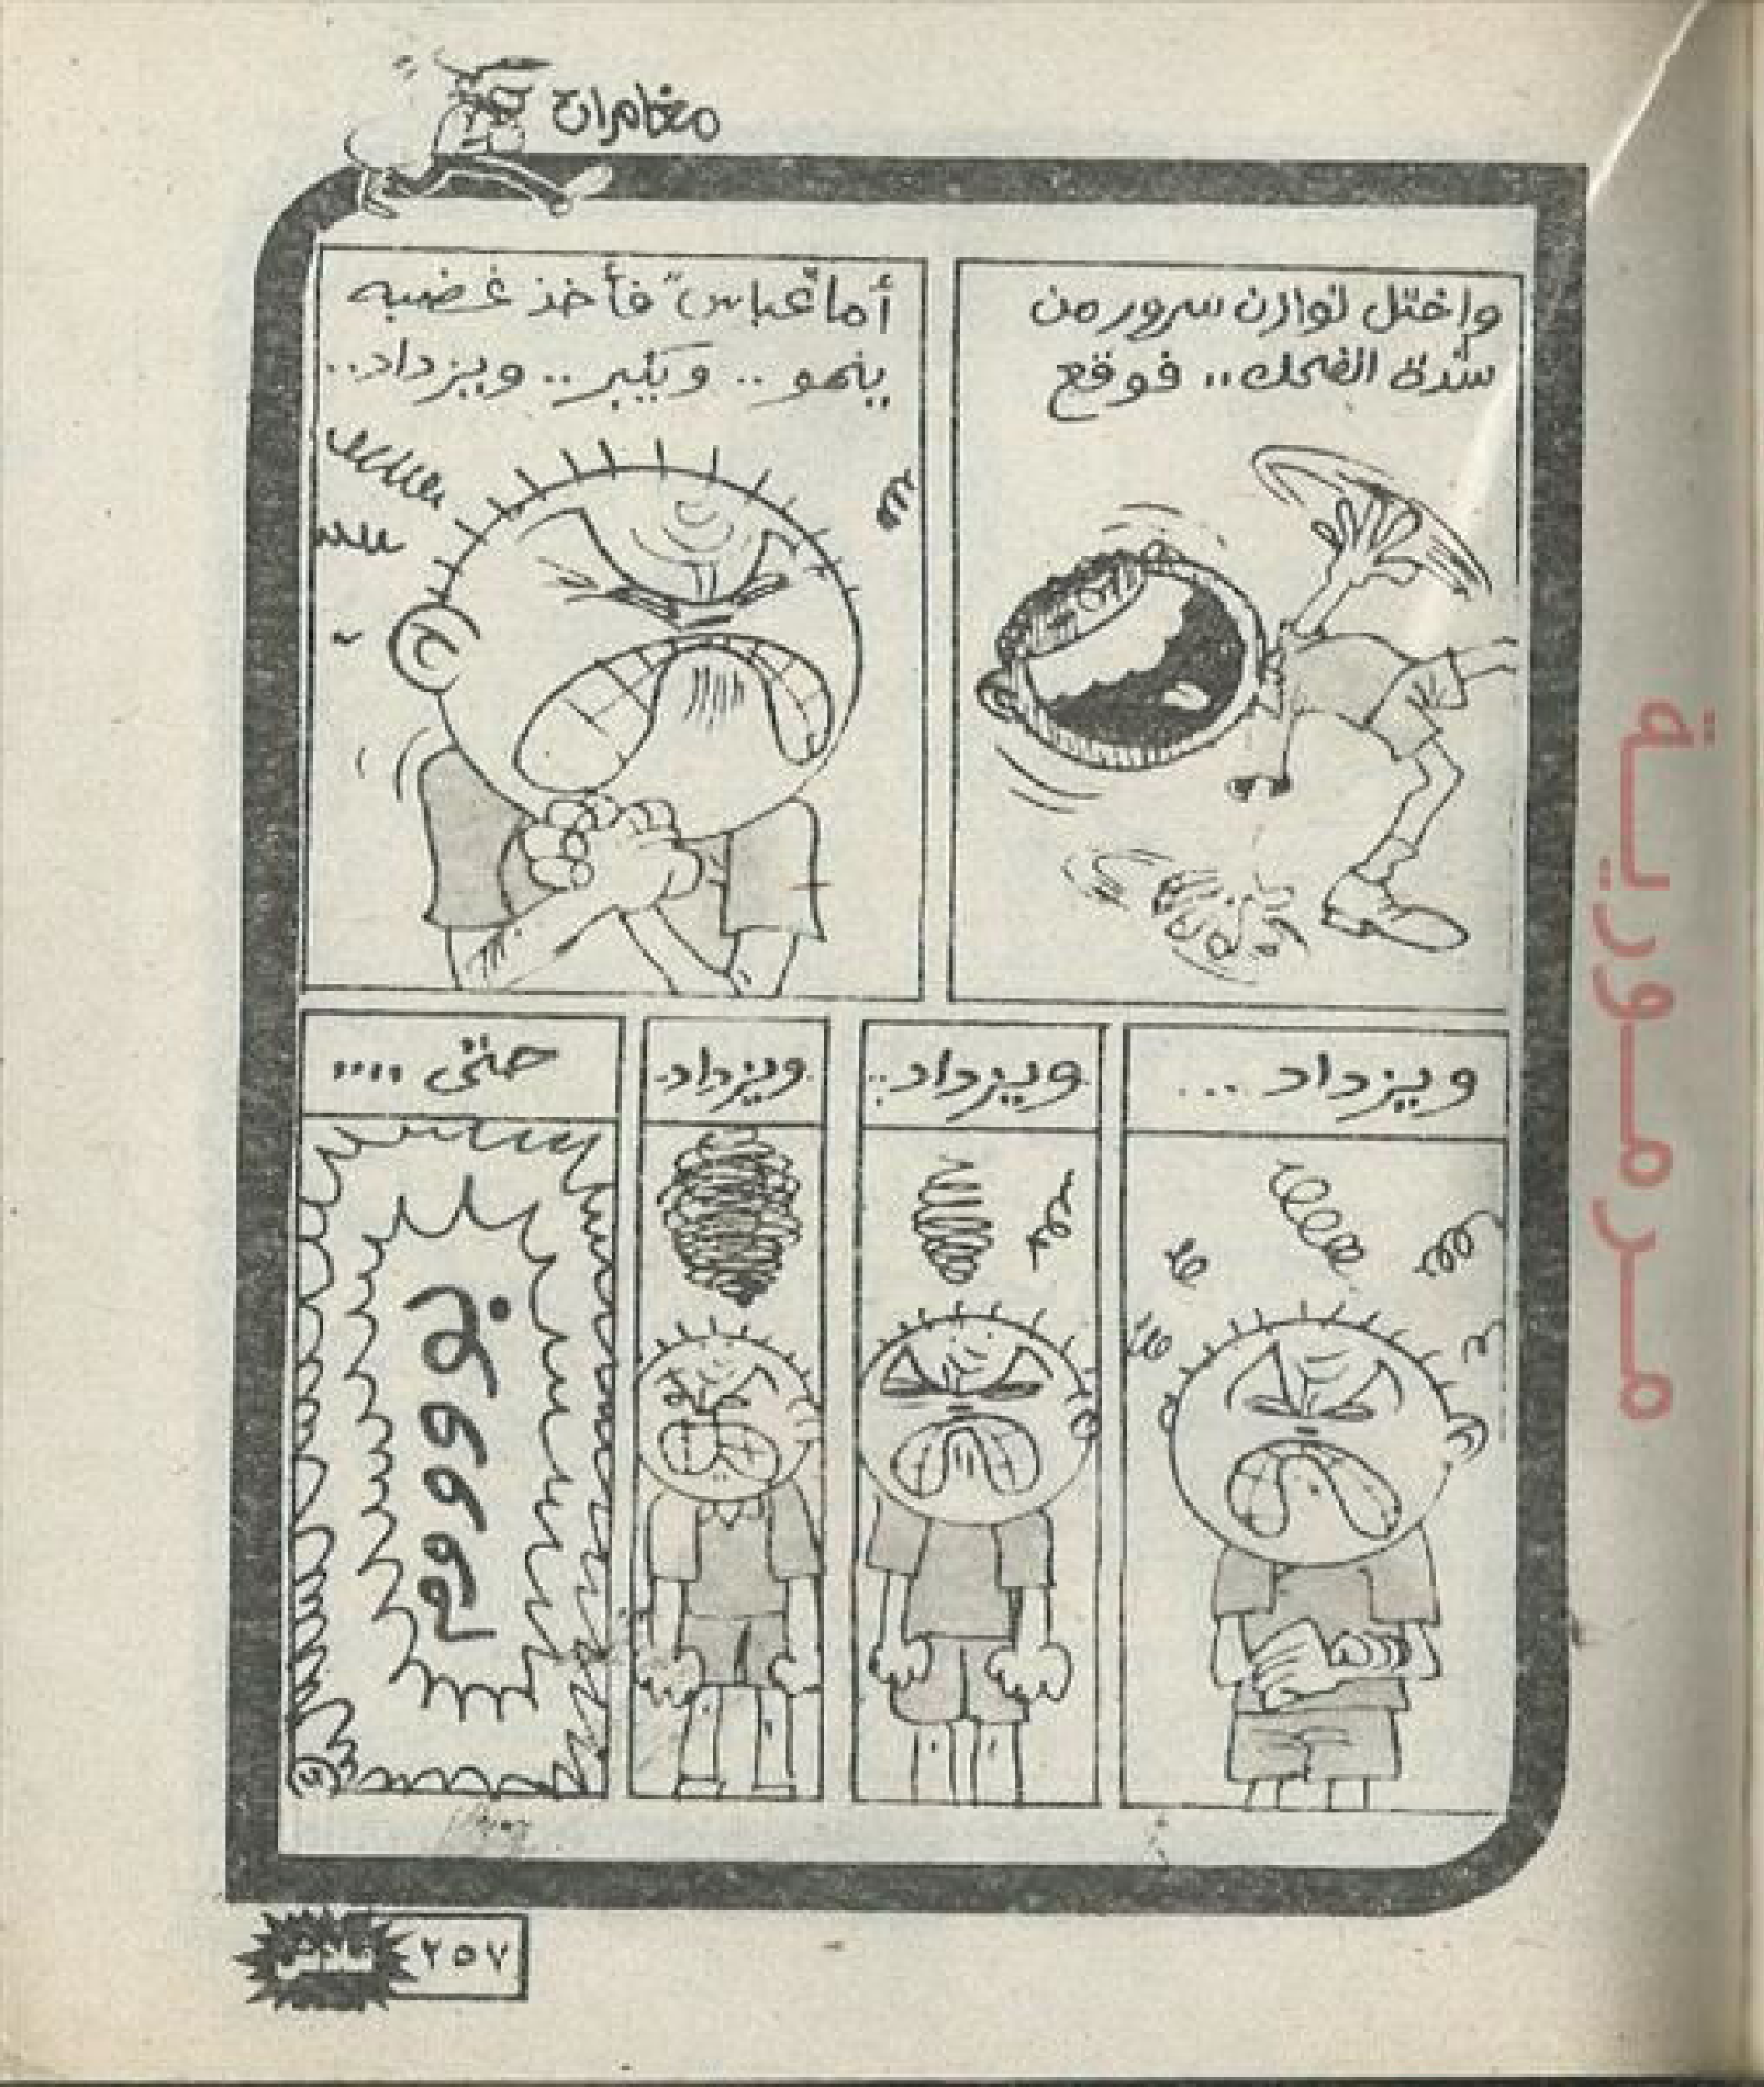 مغامرات
واختل توازن سرور من
شدة الضحك .. فوقع
أما "عباس" فأخذ غضبه
ينمو .. ويكبر .. ويزداد..
ويزداد ...
ويزداد..
ويزداد.
حتى ....
بوووووم
٢٥٧
مرمورية